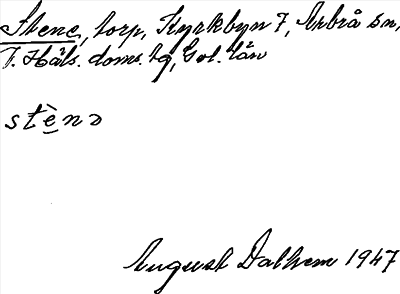 Stene, torp, Kyrkbyn 7, Arbrå sn,
V. Häls. doms. tg, Gvl. län
stènə
August Dalhem 1947